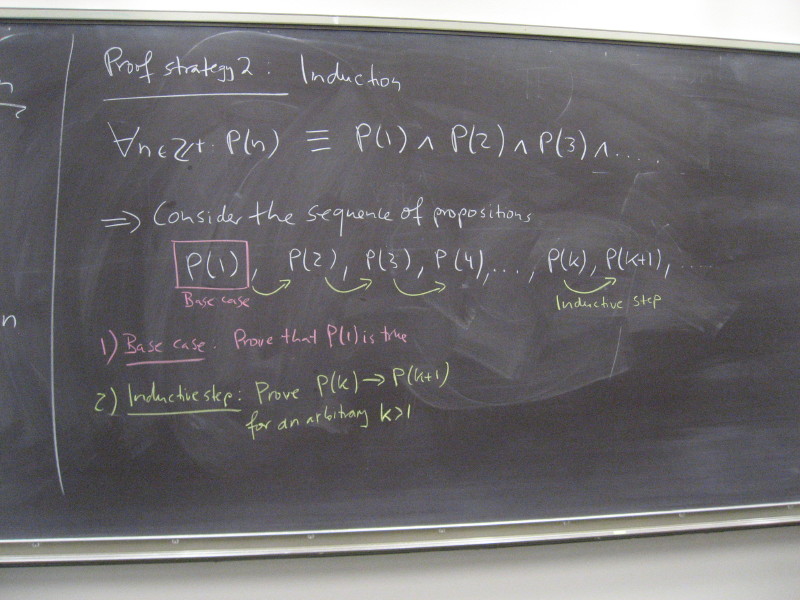 Proof strategy 2: Induction
∀n∈ℤ⁺. P(n) ≡ P(1) ∧ P(2) ∧ P(3) ∧ .....
⇒ Consider the sequence of propositions
P(1), P(2), P(3), P(4), ..., P(k), P(k+1), ....
Base case
Inductive step
1) Base case: Prove that P(1) is true
2) Inductive step: Prove P(k) → P(k+1)
for an arbitrary k>1
n